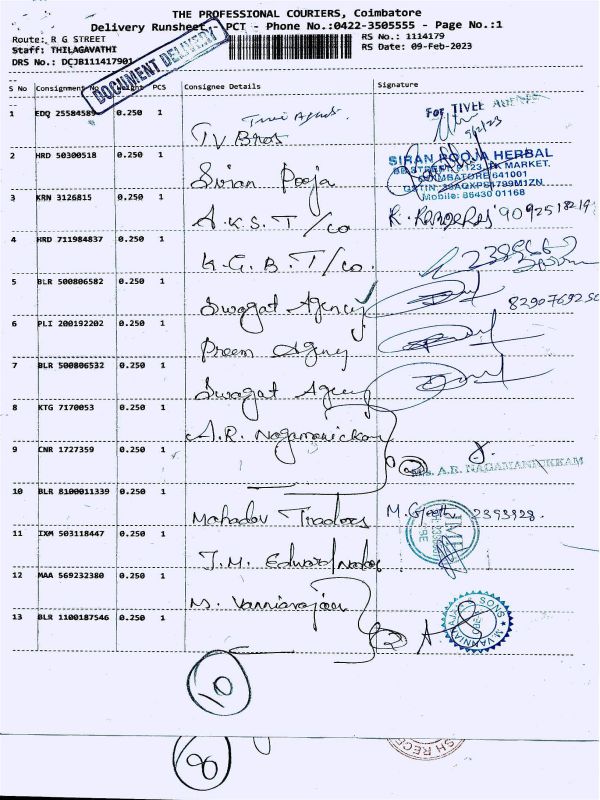 THE PROFESSIONAL COURIERS, Coimbatore
Delivery Runsheet - PCT - Phone No.:0422-3505555 - Page No.:1
Route: R G STREET
RS No.: 1114179
Staff: THILAGAVATHI
RS Date: 09-Feb-2023
DRS No.: DCJB111417901
DOCUMENT DELIVERY
S No Consignment No Weight PCS Consignee Details Signature
1 EDQ 25584589 0.250 1 T.V. Bros
FOR TIVEE AGENC
2 HRD 50300518 0.250 1 Siran Pooja
SIRAN POOJA HERBAL
MARKET,
COIMBATORE 641001
Mobile: 86430 01168
3 KRN 3126815 0.250 1 A.K.S. T/co
4 HRD 711984837 0.250 1 K.G.B. T/co.
5 BLR 500806582 0.250 1 Swagat Agency
6 PLI 200192202 0.250 1 Preem Agency
7 BLR 500806532 0.250 1 Swagat Agency
8 KTG 7170053 0.250 1 A.R. Nagamanickam
9 CNR 1727359 0.250 1
M/s. A.R. NAGAMANICKKAM
10 BLR 8100011339 0.250 1 Mahadev Traders
2393928.
11 IXM 503118447 0.250 1 J.M. Edward nadar
12 MAA 569232380 0.250 1 M. Vanniarajan
13 BLR 1100187546 0.250 1
10
8